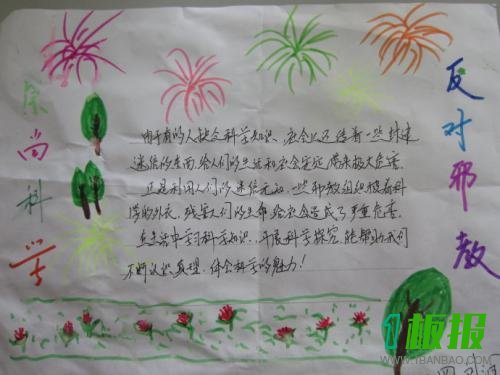 崇尚科学
反对邪教
由于有的人缺乏科学知识，社会上还活着一些封建
迷信的东西，给人们的生活和社会安定带来极大危害。
正是利用人们的迷信无知，一些邪教组织披着科
学的外衣，残害人们的生命，给社会造成了严重危害。
在生活中学习科学知识，开展科学探究，能帮助我们
不断认识真理，体会科学的魅力！
1板报
WWW.1BANBAO.COM